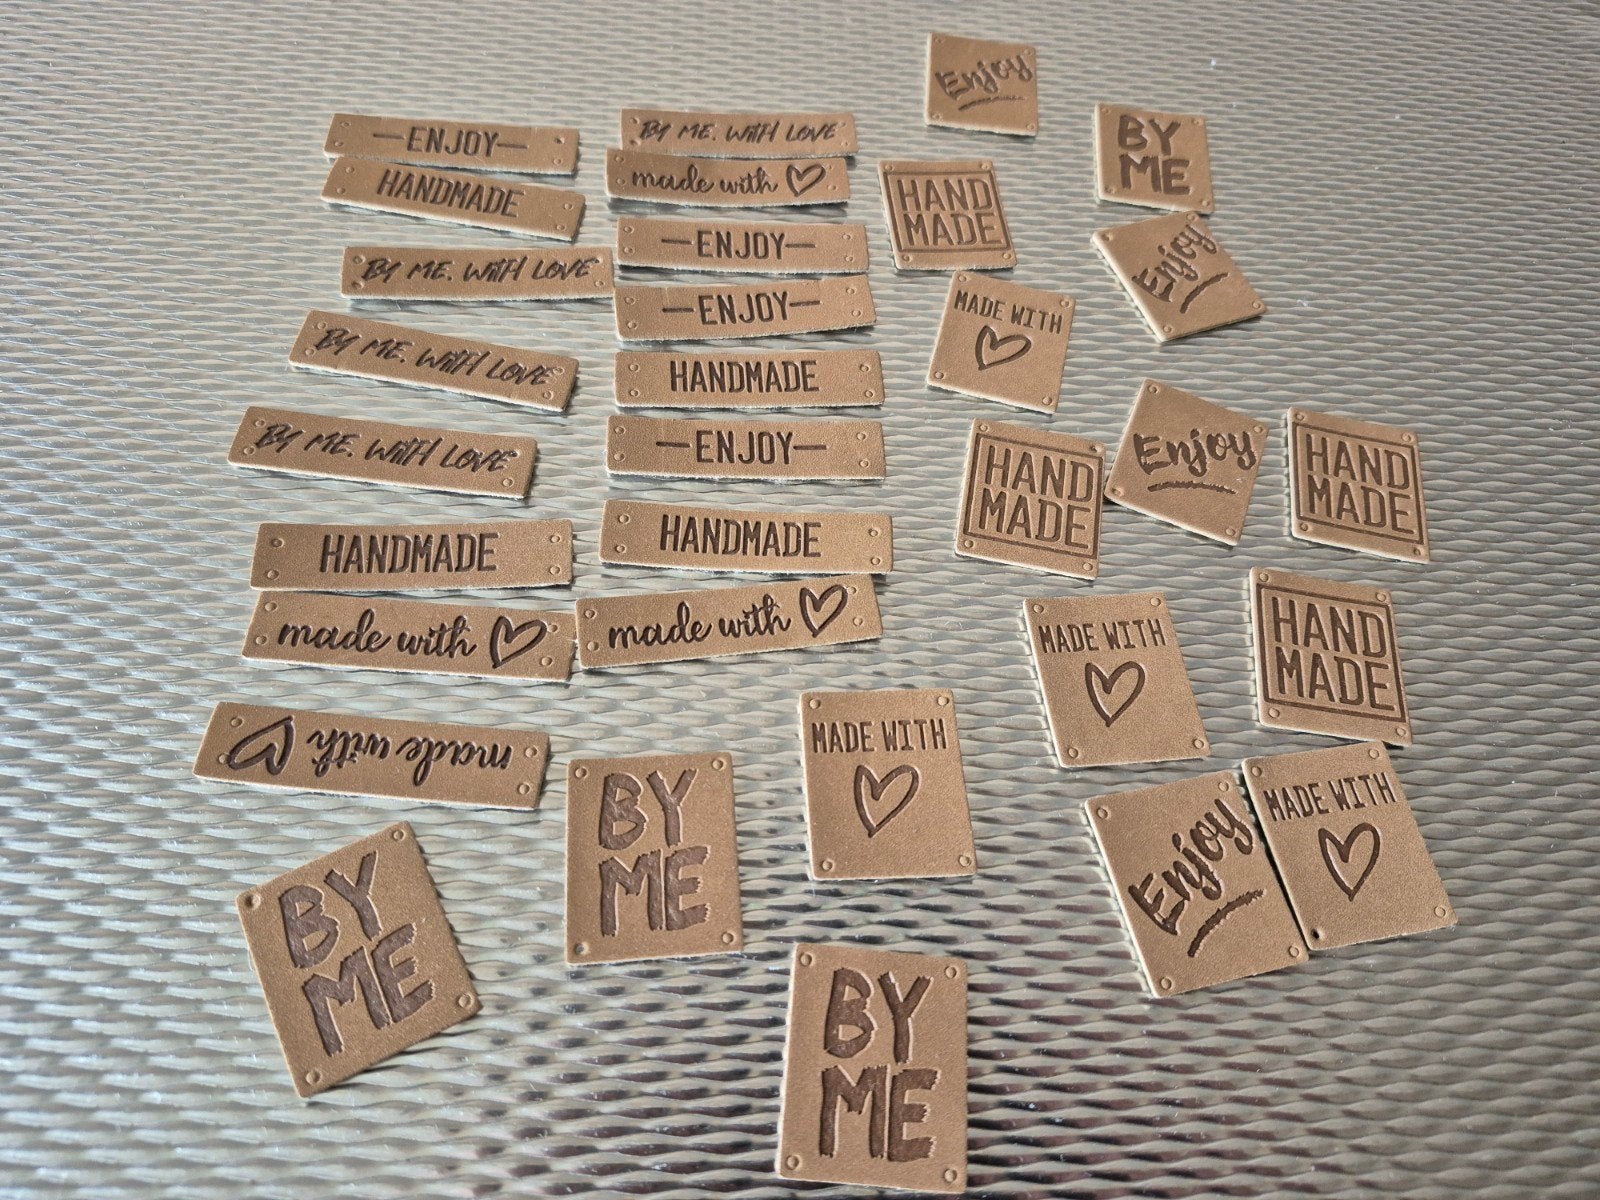 —ENJOY—
HANDMADE
BY ME. WITH LOVE
BY ME. WITH LOVE
BY ME. WITH LOVE
HANDMADE
made with
made with
BY ME. WITH LOVE
made with
—ENJOY—
—ENJOY—
HANDMADE
—ENJOY—
HANDMADE
made with
Enjoy
BY
ME
HAND
MADE
Enjoy
MADE WITH
HAND
MADE
Enjoy
HAND
MADE
MADE WITH
HAND
MADE
MADE WITH
Enjoy
MADE WITH
BY
ME
BY
ME
BY
ME